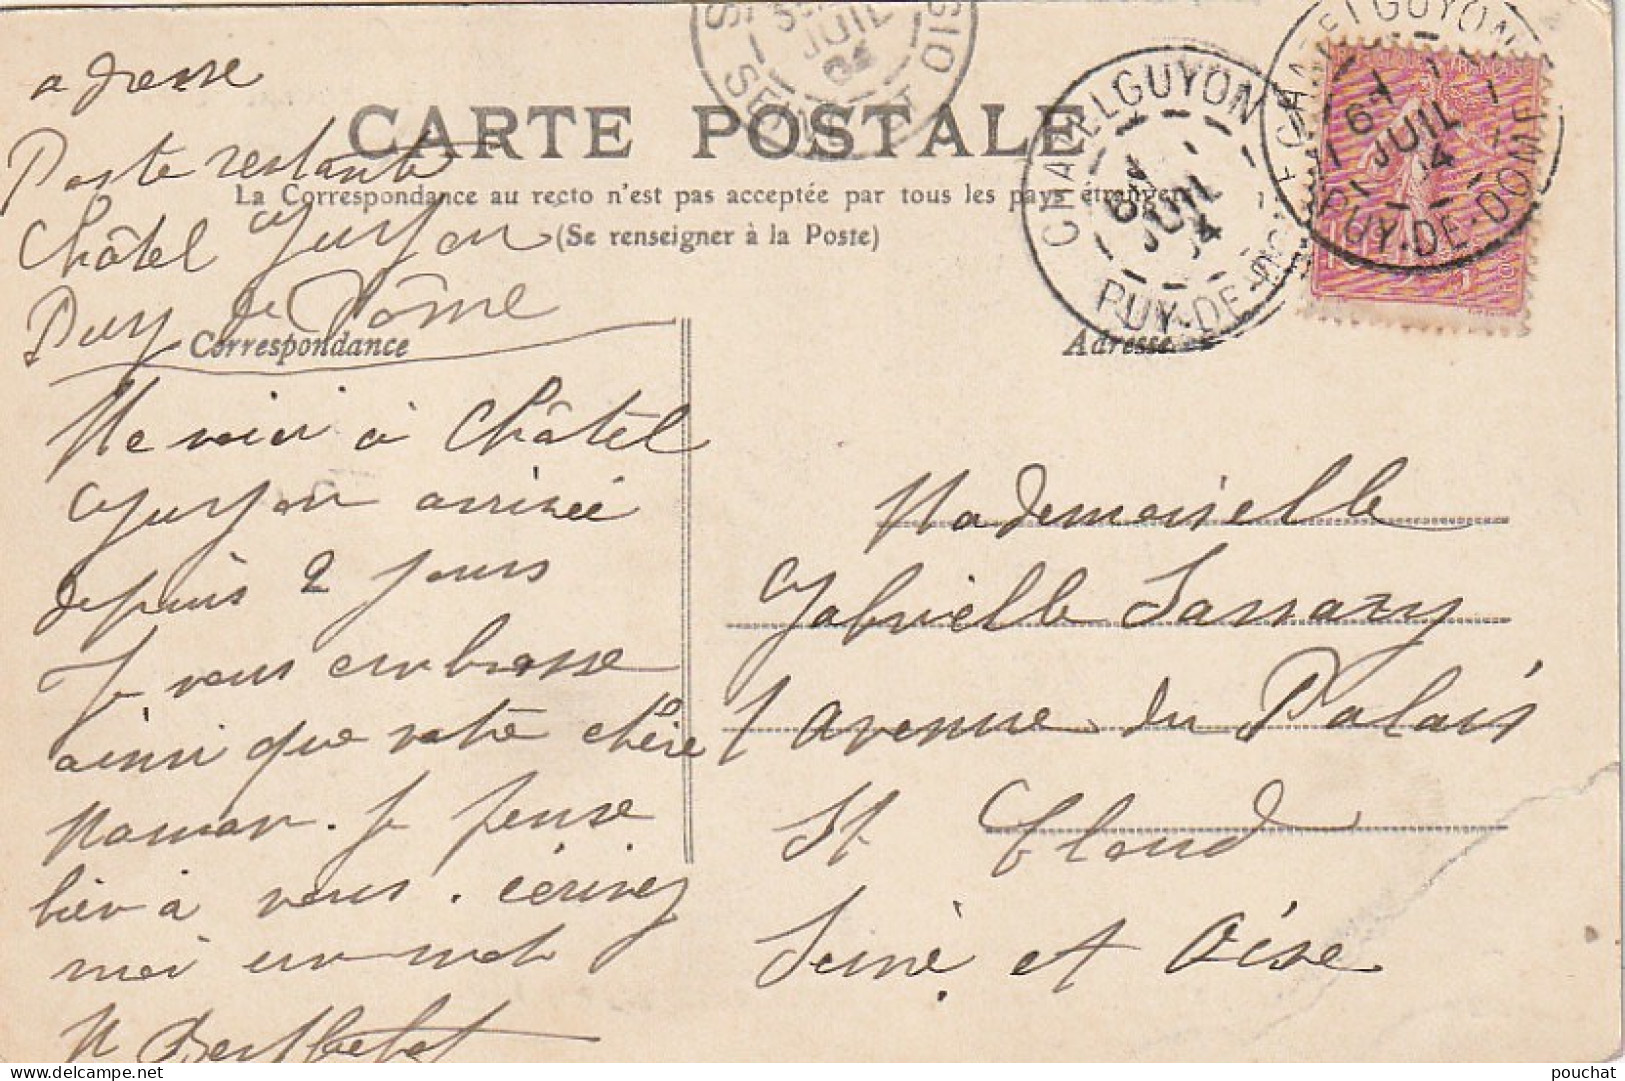 adresse
Poste restante
Châtel Guyon
Puy de Dôme
CARTE POSTALE
La Correspondance au recto n'est pas acceptée par tous les pays étrangers
(Se renseigner à la Poste)
Correspondance
Adresse
CHATELGUYON
6
JUIL
04
PUY-DE-DOME
CHATELGUYON
6
JUIL
04
PUY-DE-DOME
JUIL
04
Me voici à Châtel
Guyon arrivée
depuis 2 jours
Je vous embrasse
ainsi que votre chère
Maman. Je pense
bien à vous. écrivez
moi un mot
Mademoiselle
Gabrielle Sassary
1 avenue du Palais
St Cloud
Seine et Oise
pouchat